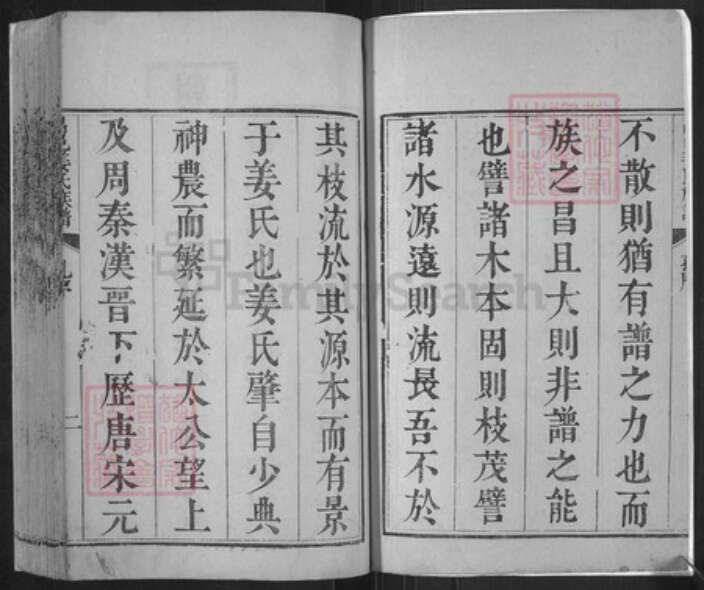 不散則猶有譜之力也而
族之昌且大則非譜之能
也譬諸木本固則枝茂譬
諸水源遠則流長吾不於
其枝流於其源本而有景
于姜氏也姜氏肇自少典
神農而繁延於太公望上
及周秦漢晉下歷唐宋元
氏族譜
二
FamilySearch